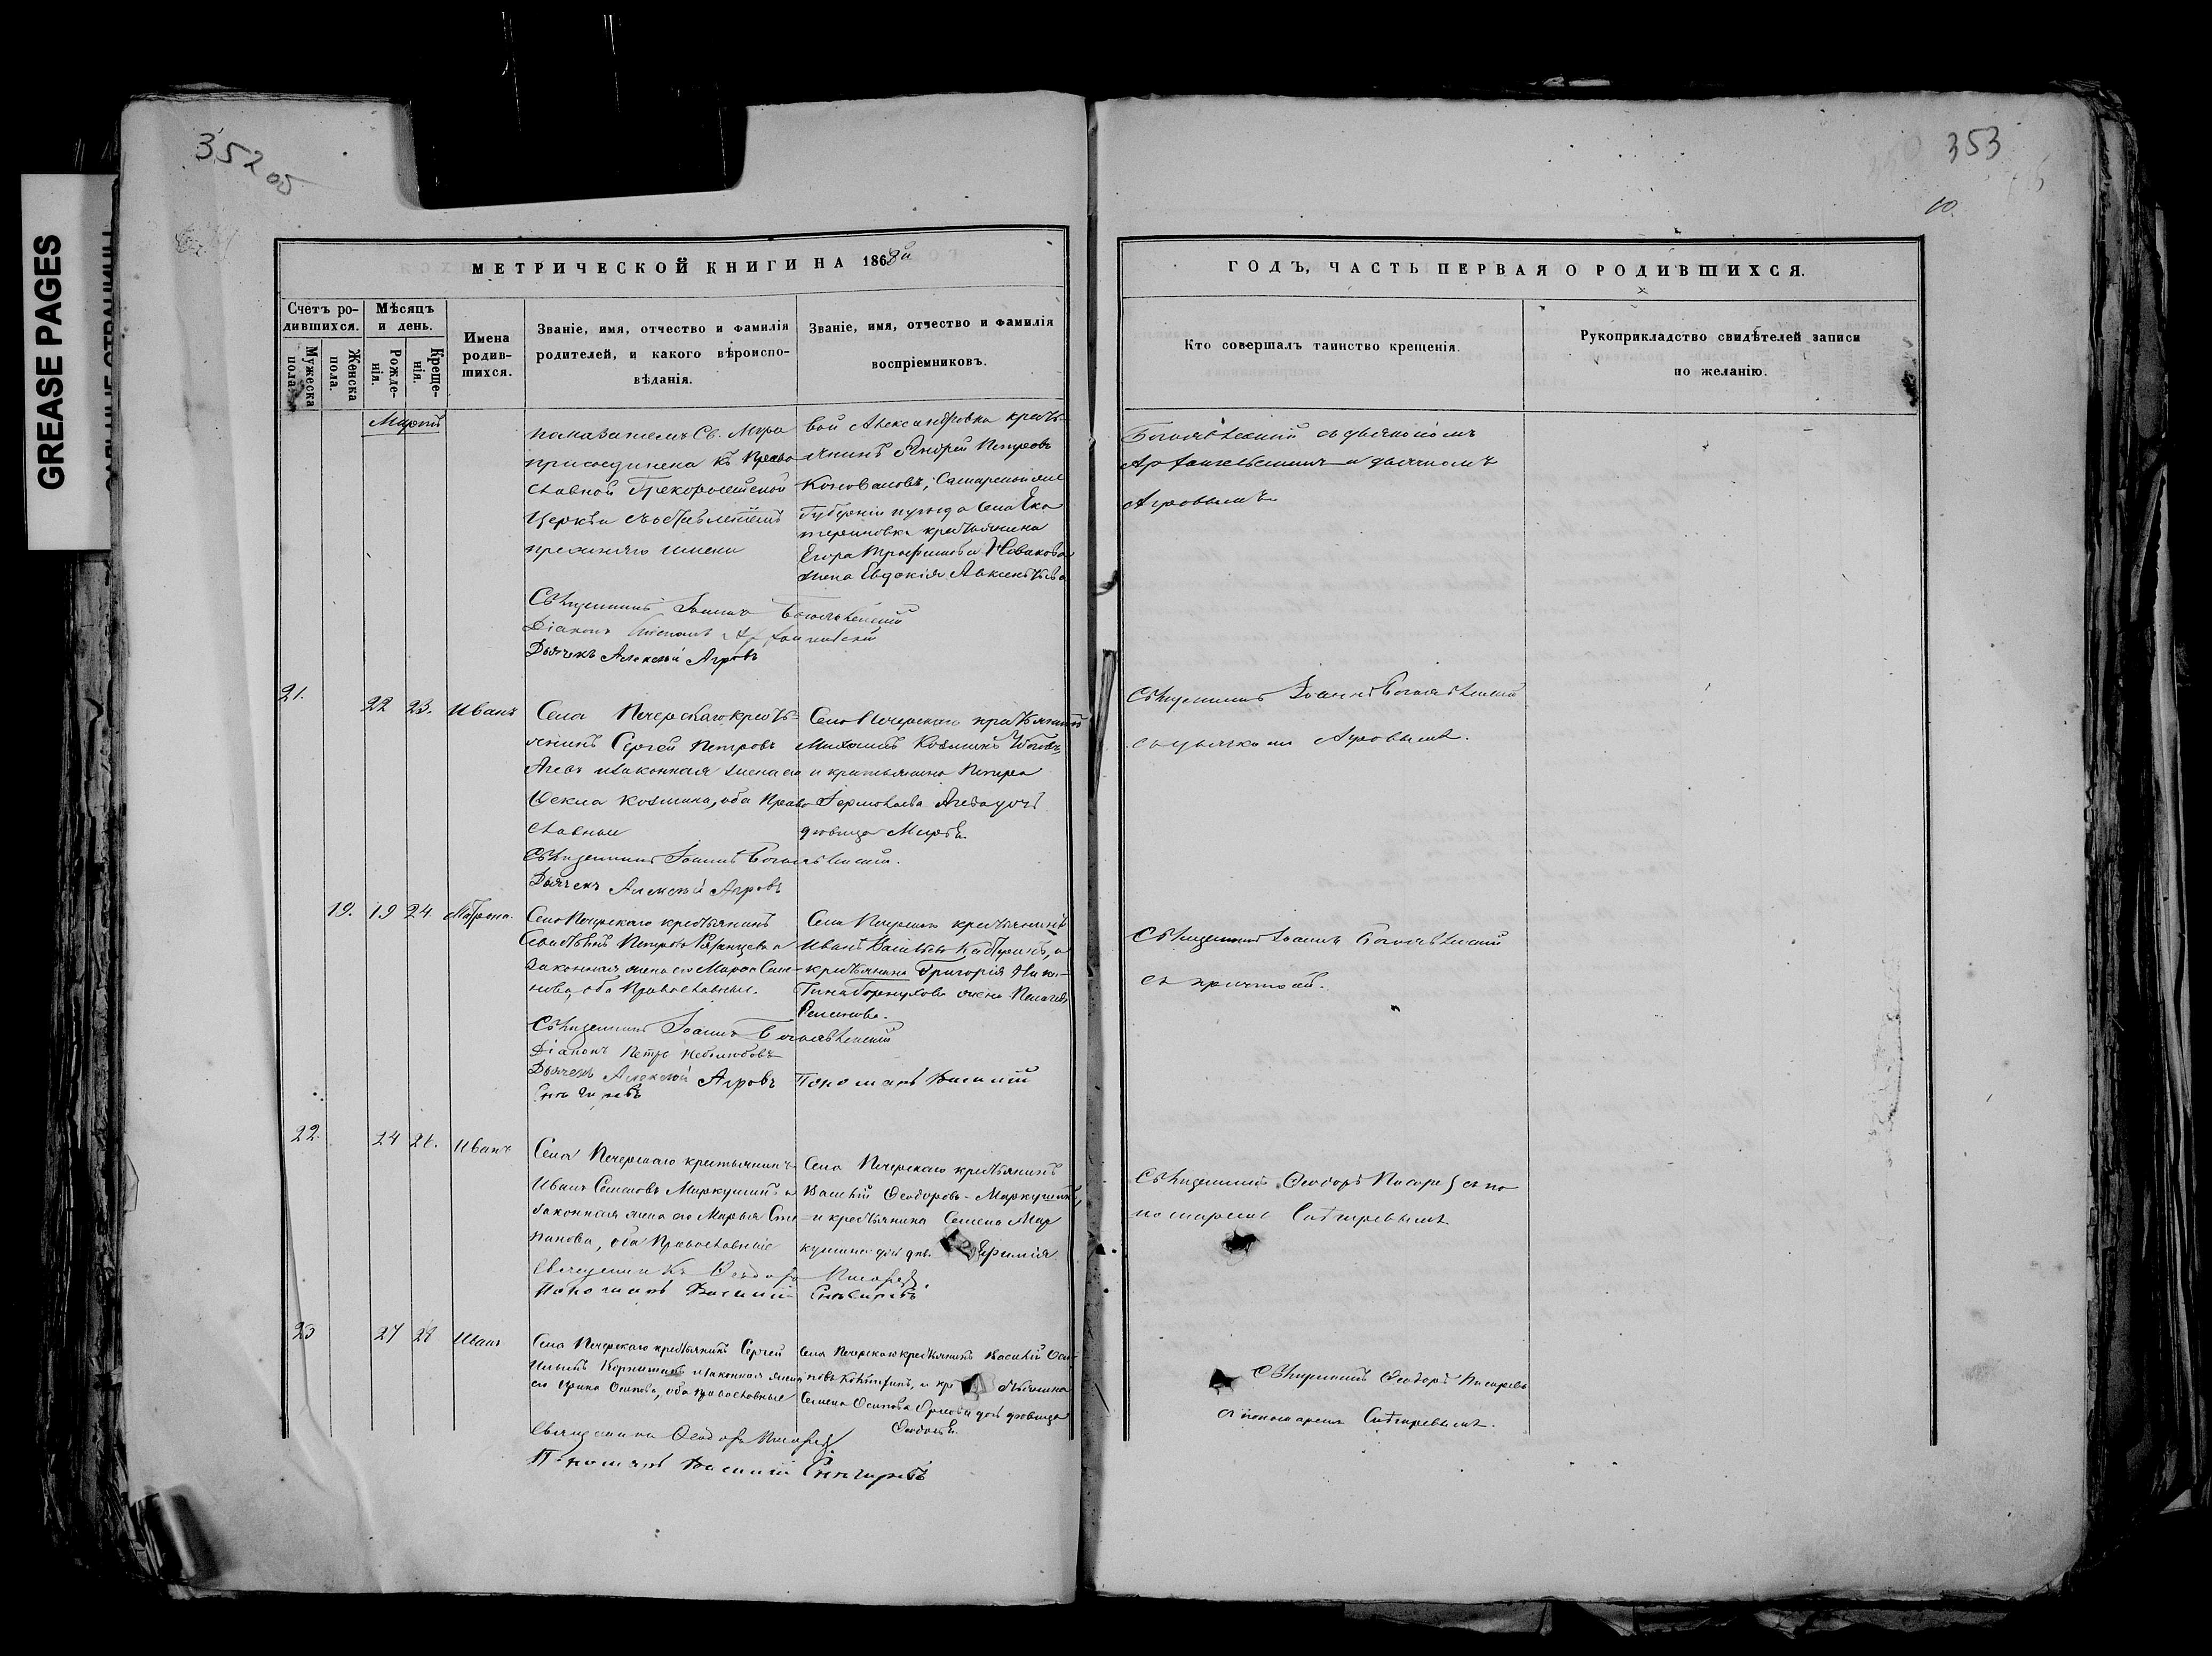 GREASE PAGES
352 об
353
10.
МЕТРИЧЕСКОЙ КНИГИ НА 1868й
ГОДЪ, ЧАСТЬ ПЕРВАЯ О РОДИВШИХСЯ.
Счетъ родившихся.
Мужеска пола.
Женска пола.
Мѣсяцъ и день.
Рожденія.
Крещенія.
Имена родившихся.
Званіе, имя, отчество и фамилія родителей, и какого вѣроисповѣданія.
Званіе, имя, отчество и фамилія воспріемниковъ.
Кто совершалъ таинство крещенія.
Рукоприкладство свидѣтелей записи по желанію.
Мартъ
помазаніемъ Св. Мѵра
присоединена къ Православной Грекороссійской
Церкви съ оставленіемъ
прежняго имени
вой Александровка крестьянинъ Андрей Петровъ
Коноваловъ, Самарской же
Губерніи уѣзда села Екатериновка крестьянина
Егора Трофимова Новикова
жена Евдокія
Богоявленскій съ діакономъ
Архангельскимъ и дьячкомъ
Агровымъ
Священникъ Іоаннъ Богоявленскій
Діаконъ Архангельскій
Дьячекъ Алексѣй Агровъ
21. 22 23. Иванъ
Села Печерскаго крестьянинъ Сергей Петровъ
Агевъ и законная жена его
Ѳекла Козмина, оба Православные
Села Печерскаго крестьянинъ
Михаилъ Козминъ
и крестьянина Петра
Ермолаева Агева дочь
дѣвица Марѳа.
Священникъ Іоаннъ Богоявленскій
съ дьячкомъ Агровымъ.
Священникъ Іоаннъ Богоявленскій.
Дьячекъ Алексѣй Агровъ
19. 19 24. Матрона.
Села Печерскаго крестьянинъ
Петровъ и
законная жена его Марѳа Симонова, оба Православные.
Села Печерскаго крестьянинъ
Иванъ Васильевъ и
крестьянина Григорія
жена Пелагея
Семенова.
Священникъ Іоаннъ Богоявленскій
съ причтомъ.
Священникъ Іоаннъ Богоявленскій
Діаконъ Петръ
Дьячекъ Алексѣй Агровъ Пономарь Василій
Снѣгиревъ
22. 24 26. Иванъ
Села Печерскаго крестьянинъ
Иванъ Семеновъ Маркушинъ и
законная жена его Марья Степанова, оба Православные
Села Печерскаго крестьянинъ
Василій Ѳеодоровъ Маркушинъ,
и крестьянина Семена Маркушина дочь дѣв.
Священникъ Ѳеодоръ Писаревъ съ пономаремъ Снѣгиревымъ.
Священникъ Ѳеодоръ Писаревъ.
Пономарь Василій Снѣгиревъ
23 27 28 Иванъ
Села Печерскаго крестьянинъ Сергей
и законная жена
его Ирина Осипова, оба православные
Села Печерскаго крестьянинъ Василій Осиповъ и крестьянина
Семена Осипова дочь дѣвица
Ѳедосья.
Священникъ Ѳеодоръ Писаревъ
съ пономаремъ Снѣгиревымъ.
Священникъ Ѳеодоръ Писаревъ
Пономарь Василій Снѣгиревъ